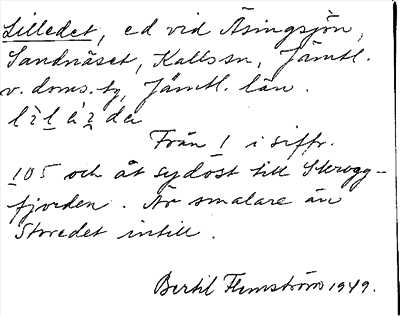 Lilledet, ed vid Äsingsjön,
Sandnäset, Kallssn, Jämtl.
v. doms. tg, Jämtl. län.
Från 1 i siffr.
105 och åt sydöst till Skrogg-
fjorden. Är smalare än
Storedet intill.
Bertil Flemström 1949.